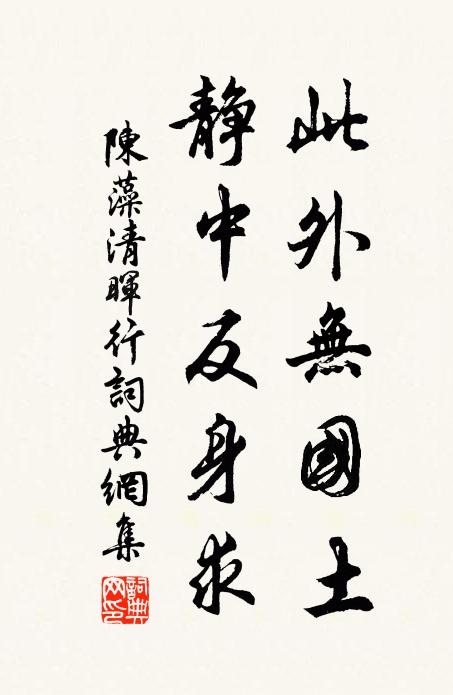 此外無國土
静中反身求
陳藻清暉行詞典網集
詞典网印